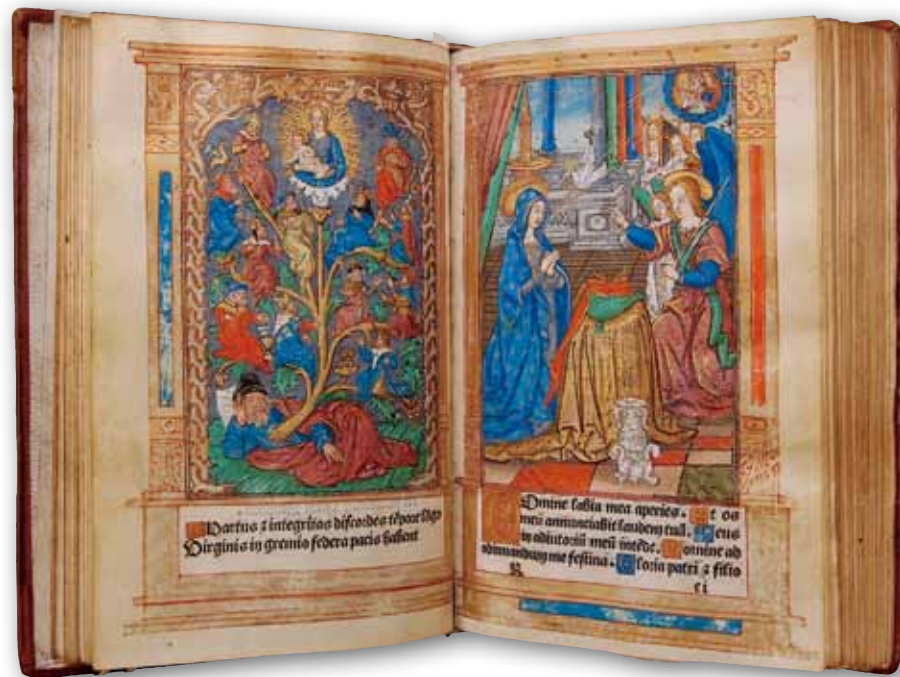 Partus ⁊ integritas discordes tẽpore lõgo
Virginis in gremio federa pacis habent
Domine labia mea aperies. Et os
meu annunciabit laudem tuã. Deus
in adiutoriũ meũ intẽde. Domine ad
adiuvandum me festina. Gloria patri ⁊ filio